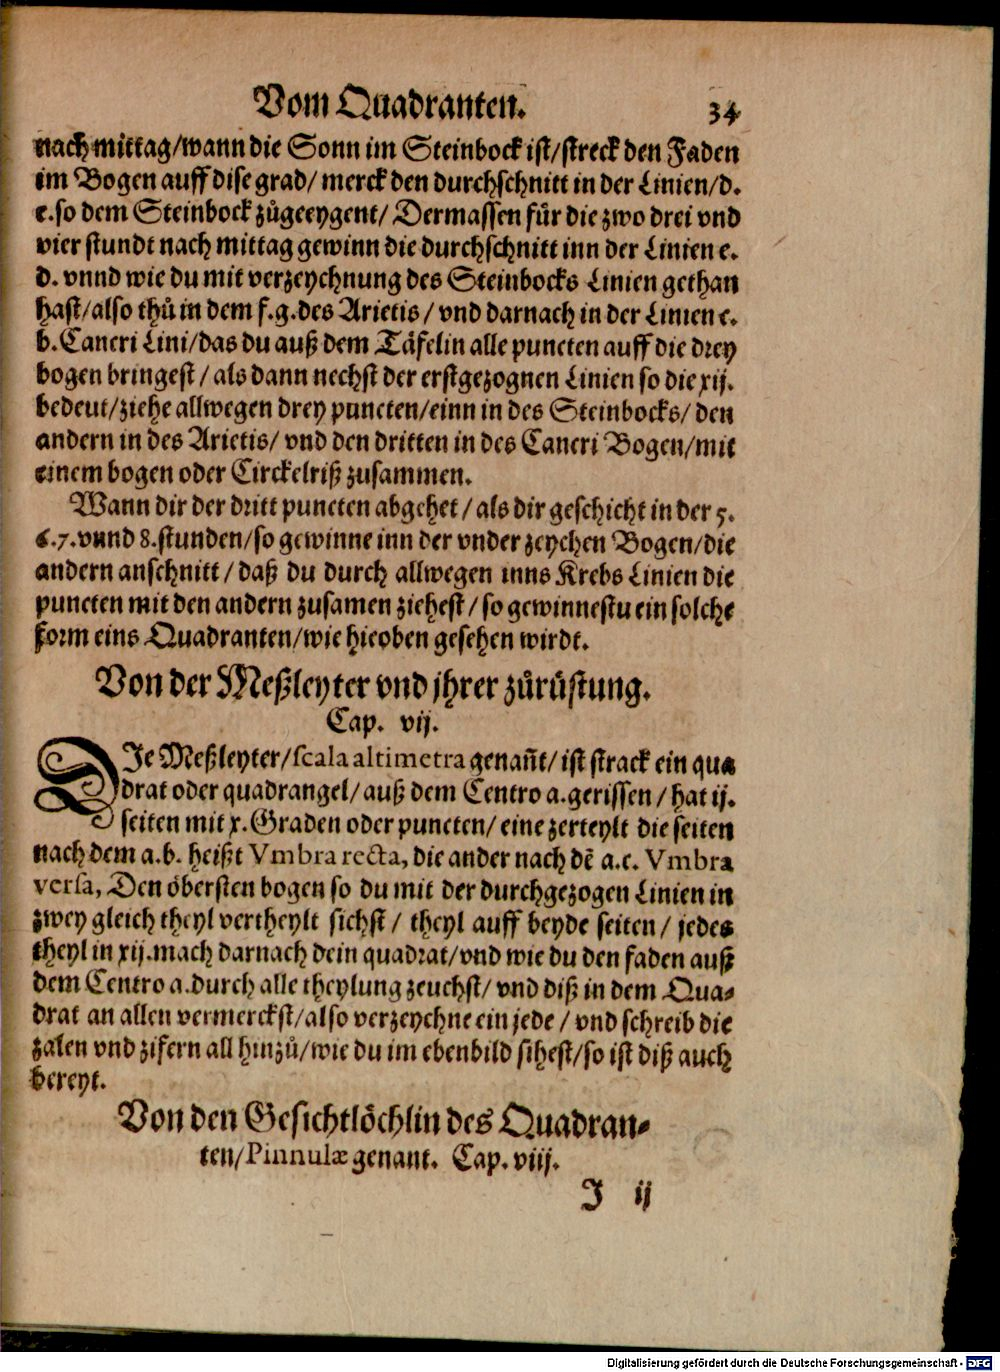 Vom Quadranten. 34
nach mittag/wann die Sonn im Steinbock ist/streck den Faden
im Bogen auff dise grad/ merck den durchschnitt in der Linien/d.
e.so dem Steinbock zůgeeygent/ Dermassen für die zwo drei vnd
vier stundt nach mittag gewinn die durchschnitt inn der Linien e.
d. vnnd wie du mit verzeychnung des Steinbocks Linien gethan
hast/also thů in dem f.g.des Arietis / vnd darnach in der Linien c.
b.Cancri Lini/das du auß dem Täfelin alle puncten auff die drey
bogen bringest / als dann nechst der erstgezognen Linien so die xij.
bedeut/ziehe allwegen drey puncten/einn in des Steinbocks/ den
andern in des Arietis/ vnd den dritten in des Cancri Bogen/mit
einem bogen oder Circkelriß zusammen.
Wann dir der dritt puncten abgehet / als dir geschicht in der 5.
6.7.vnnd 8.stunden/so gewinne inn der vnder zeychen Bogen/die
andern anschnitt / daß du durch allwegen inns Krebs Linien die
puncten mit den andern zusamen ziehest / so gewinnestu ein solche
form eins Quadranten/wie hieoben gesehen wirdt.
Von der Meßleyter vnd jhrer zůrüstung.
Cap. vij.
DIe Meßleyter/scala altimetra genañt/ ist strack ein qua
drat oder quadrangel/ auß dem Centro a.gerissen / hat ij.
seiten mit x.Graden oder puncten/ eine zerteylt die seiten
nach dem a.b. heißt Vmbra recta, die ander nach dē a.c. Vmbra
versa, Den öbersten bogen so du mit der durchgezogen Linien in
zwey gleich theyl vertheylt sichst / theyl auff beyde seiten / jedes
theyl in xij.mach darnach dein quadrat/vnd wie du den faden auß
dem Centro a.durch alle theylung zeuchst/ vnd diß in dem Qua-
drat an allen vermerckst/also verzeychne ein jede / vnd schreib die
zalen vnd zifern all hinzů/wie du im ebenbild sihest/so ist diß auch
bereyt.
Von den Gesichtlöchlin des Quadran-
ten/Pinnulæ genant. Cap. viij.
J ij
Digitalisierung gefördert durch die Deutsche Forschungsgemeinschaft - DFG